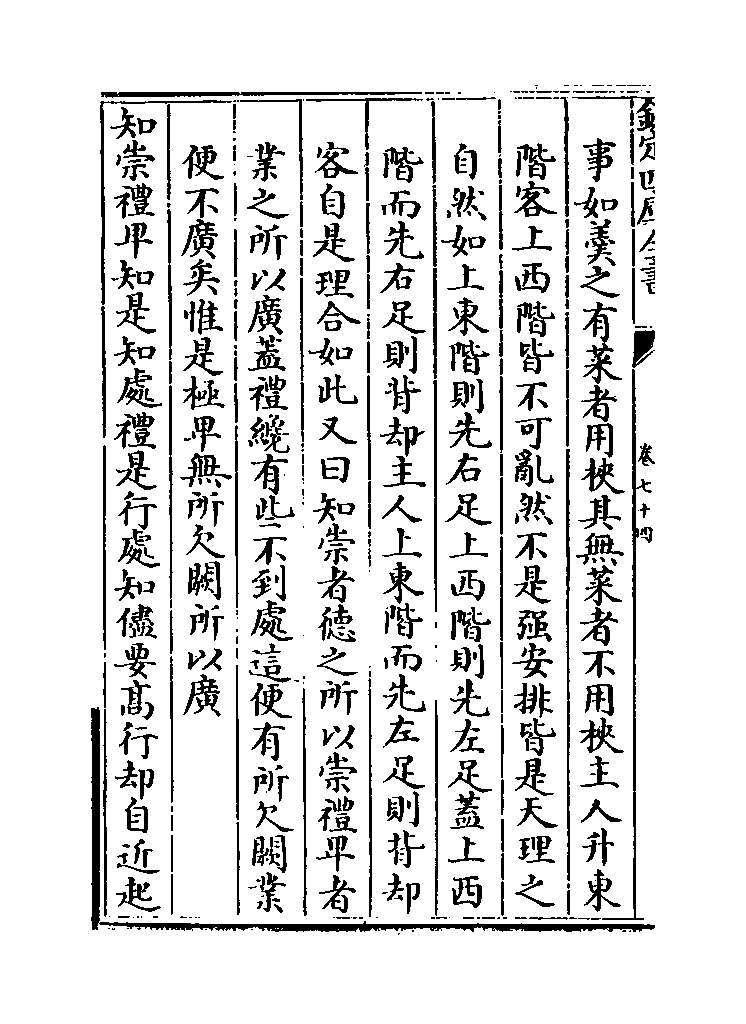 欽定四庫全書
卷七十四
事如羮之有菜者用梜其無菜者不用梜主人升東
階客上西階皆不可亂然不是强安排皆是天理之
自然如上東階則先右足上西階則先左足蓋上西
階而先右足則背却主人上東階而先左足則背却
客自是理合如此又曰知崇者德之所以崇禮卑者
業之所以廣蓋禮纔有些不到處這便有所欠闕業
便不廣矣惟是極卑無所欠闕所以廣
知崇禮卑知是知處禮是行處知儘要髙行却自近起